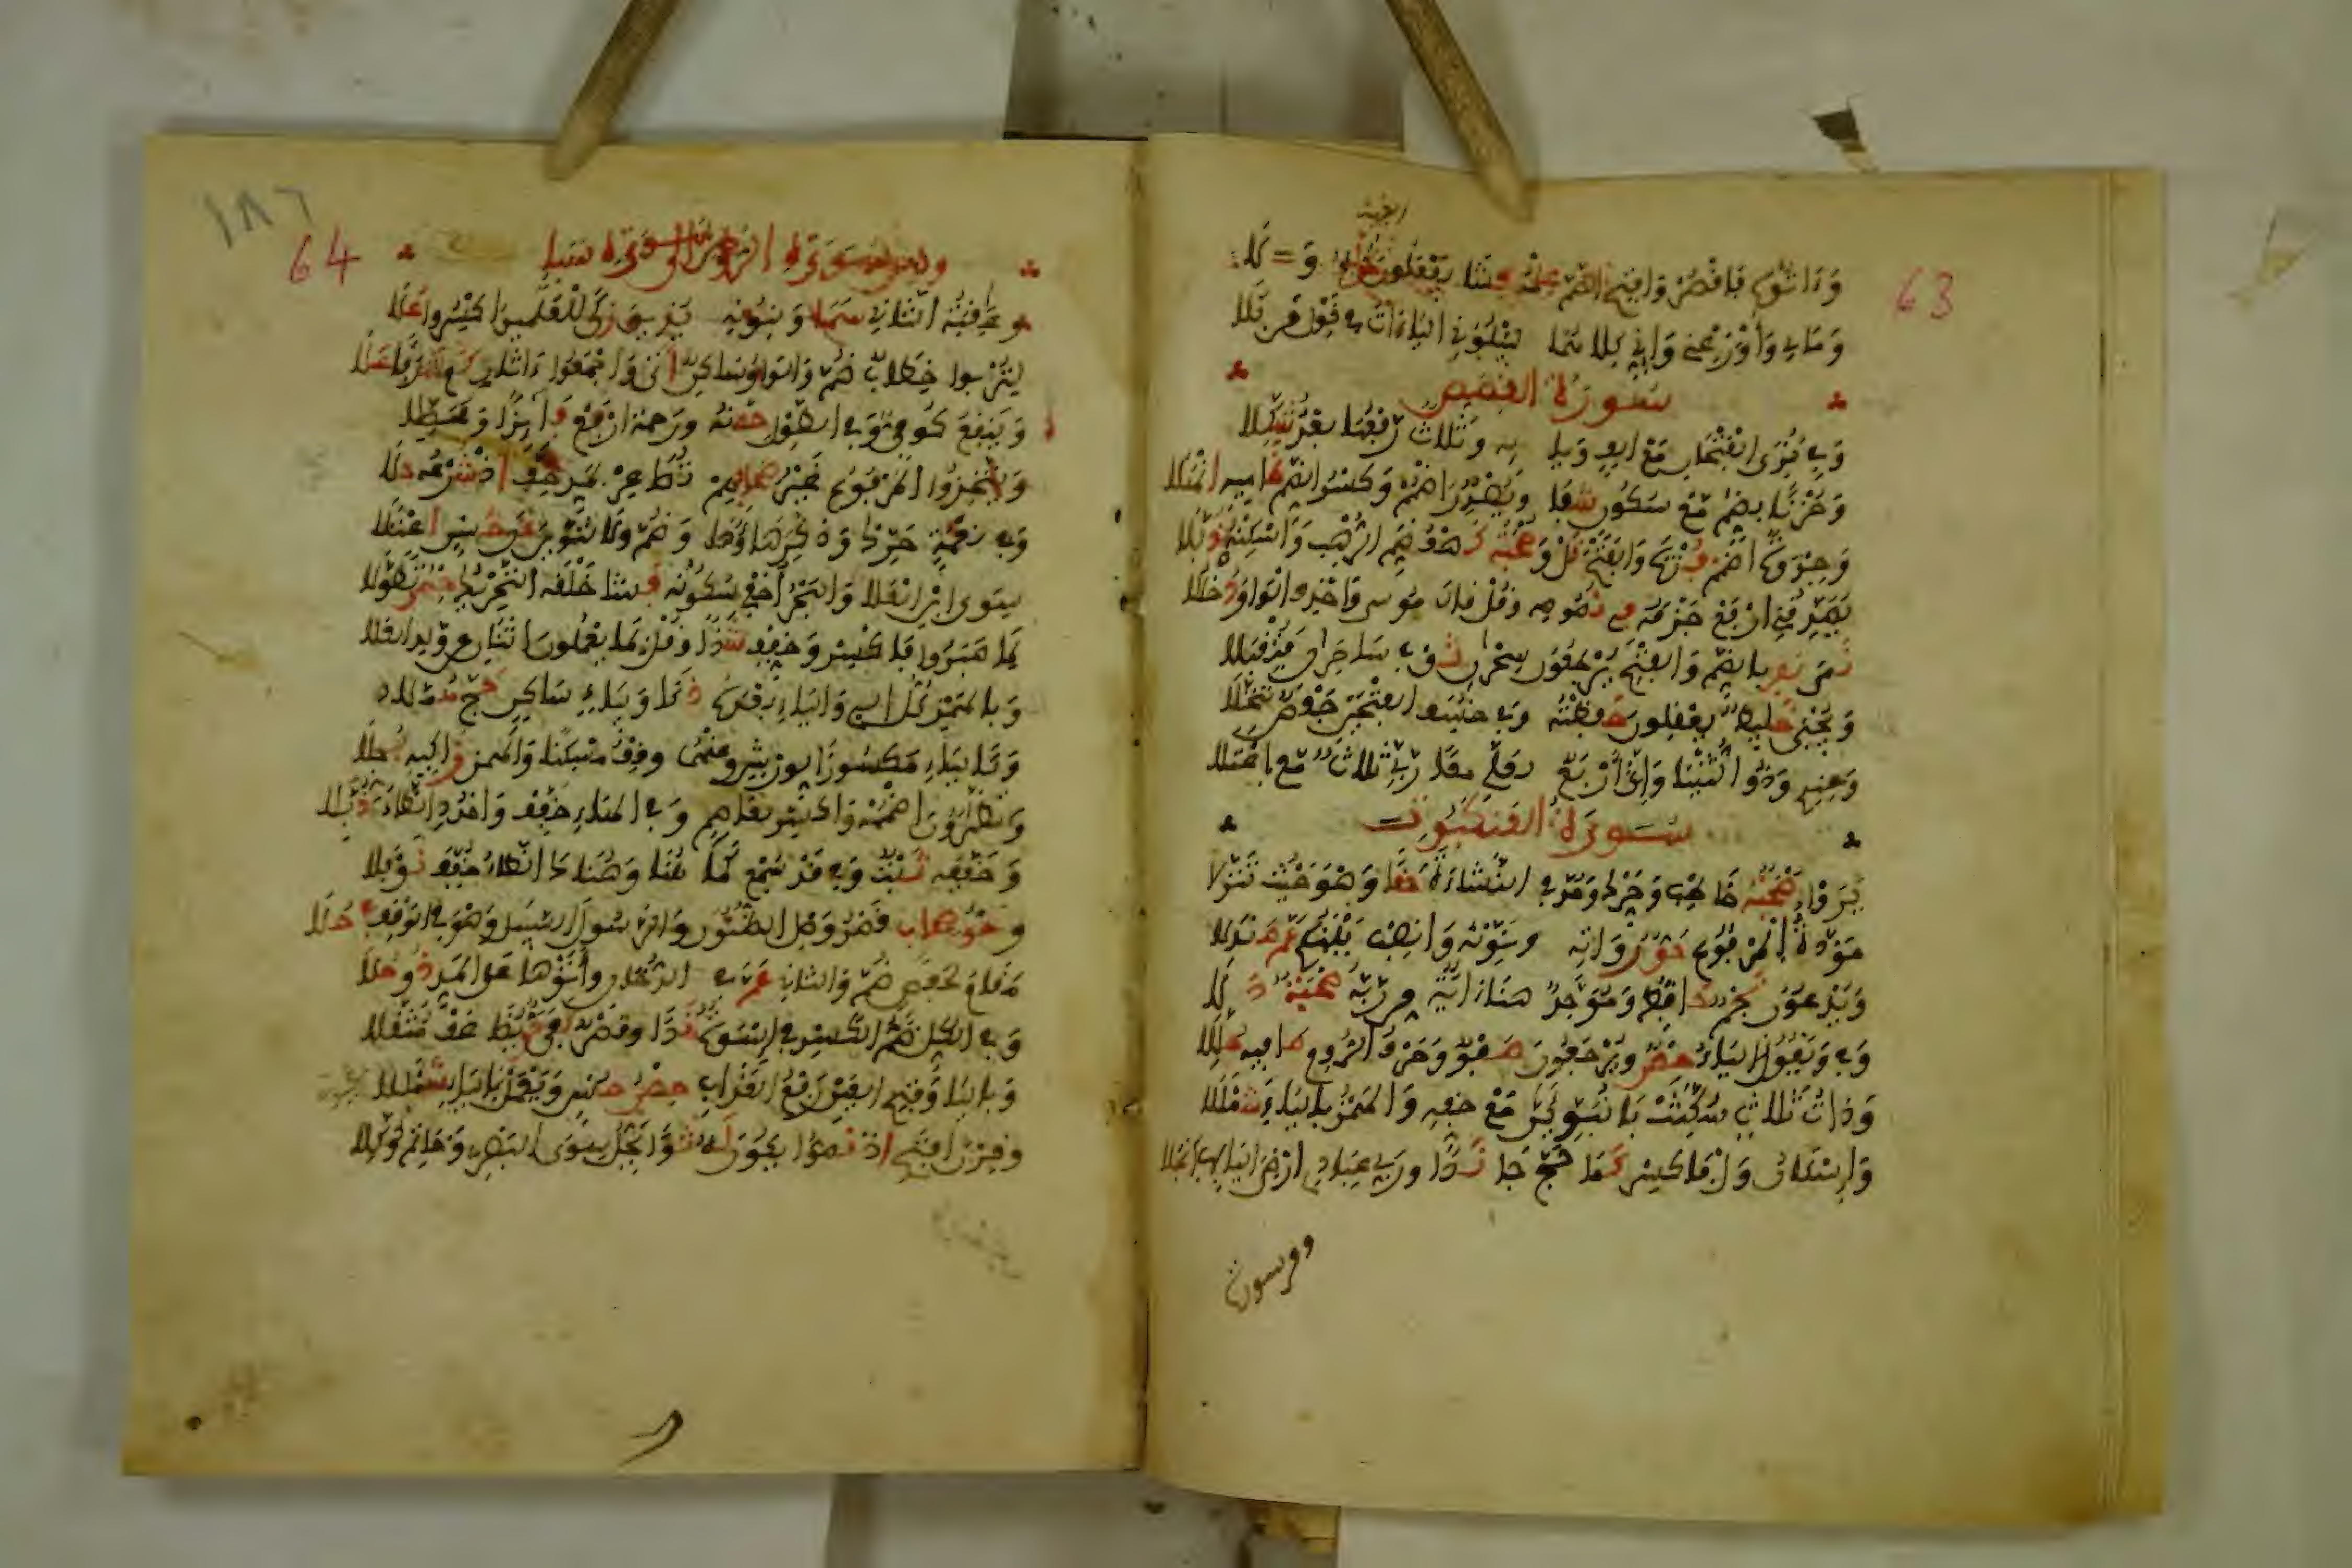 وءاتوه فاقصر وافتح الضم علمه فشا يفعلون الغيب
ومالي وأوزعني وإني كلاهما ليبلوني الياءات في قول من بلا
سورة القصص
وفي نرى الفتحان مع الف ويا ئه وثلاث رفعها بعد شكلا
وحزنا بضم مع سكون شفا ويصدر اضمم وكسر الضم ظاميه انهلا
وجذوة اضمم فزت والفتح نل وصحبة كهف ضم الرهب واسكنه ذبلا
يصدقني ارفع جزمه في نصوصه وقل قال موسى واحذف الواو دخللا
نما نفر بالضم والفتح يرجعون سحران ثق في ساحران فتقبلا
ويجبى خليط يعقلون حفظته وفي خسف الفتحين حفص تنخلا
وعندي وذو الثنيا وإني أربع لعلي معا ربي ثلاث مع اعتلا
سورة العنكبوت
يروا صحبة خاطب وحرك ومد في النشاءة حقا وهو حيث تنزلا
مودة المرفوع حق رواته ونونه وانصب بينكم عم صندلا
ويدعون نجم حافظ وموحد هنا ءاية من ربه صحبة دلا
وفي ونقول الياء حصن ويرجعون صفو وحرف الروم صافيه حللا
وذات ثلاث سكنت با نبوئن مع خفه والهمز بالياء شمللا
وإسكان ول فاكسر كما حج جا ندا وربي عبادي أرضي اليا بها انجلا
ومن سورة
63
64
١٨٦
ومن سورة الروم إلى سورة سبإ
وعاقبة الثاني سما وبنونه نذيق زكى للعلمين اكسروا علا
ليربوا خطاب ضم والواو ساكن أتى واجمعوا ءاثار كم شرفا علا
وينفع كوفي وفي الطول حصنه ورحمة ارفع فائزا ومحصلا
ويتخذ المرفوع غير صحابهم تصعر بمد خف إذ شرعه حلا
وفي نعمة حرك وذكر هاؤها وضم ولا تنوين عن حسن اعتلا
سوى ابن العلا والبحر أخفي سكونه فشا خلقه التحريك حصن تطولا
لما صبروا فاكسر وخفف شذا وقل بما يعملون اثنان عن ولد العلا
وبالهمز كل اللاء والياء بعده ذكا وبياء ساكن حج هملا
وكالياء مكسورا لورش وعنهما وقف مسكنا والهمز زاكيه بجلا
وتظاهرون اضممه واكسر لعاصم وفي الهاء خفف وامدد الظاء ذبلا
وخففه ثبت وفي قد سمع كما هنا وهناك الظاء خفف نوفلا
وحق صحاب قصر وصل الظنون والرسول السبيل وهو في الوقف في حلا
مقام لحفص ضم والثاني عم في الدخان وءاتوها على المد ذو حلا
وفي الكل ضم الكسر في إسوة ندا وقصر كفا حق يضاعف مثقلا
وباليا وفتح العين رفع العذاب حصن حسن ويعمل باليا شمللا
وقرن افتح إذ نصوا يكون له ثوى يحل سوى البصري وخاتم وكلا